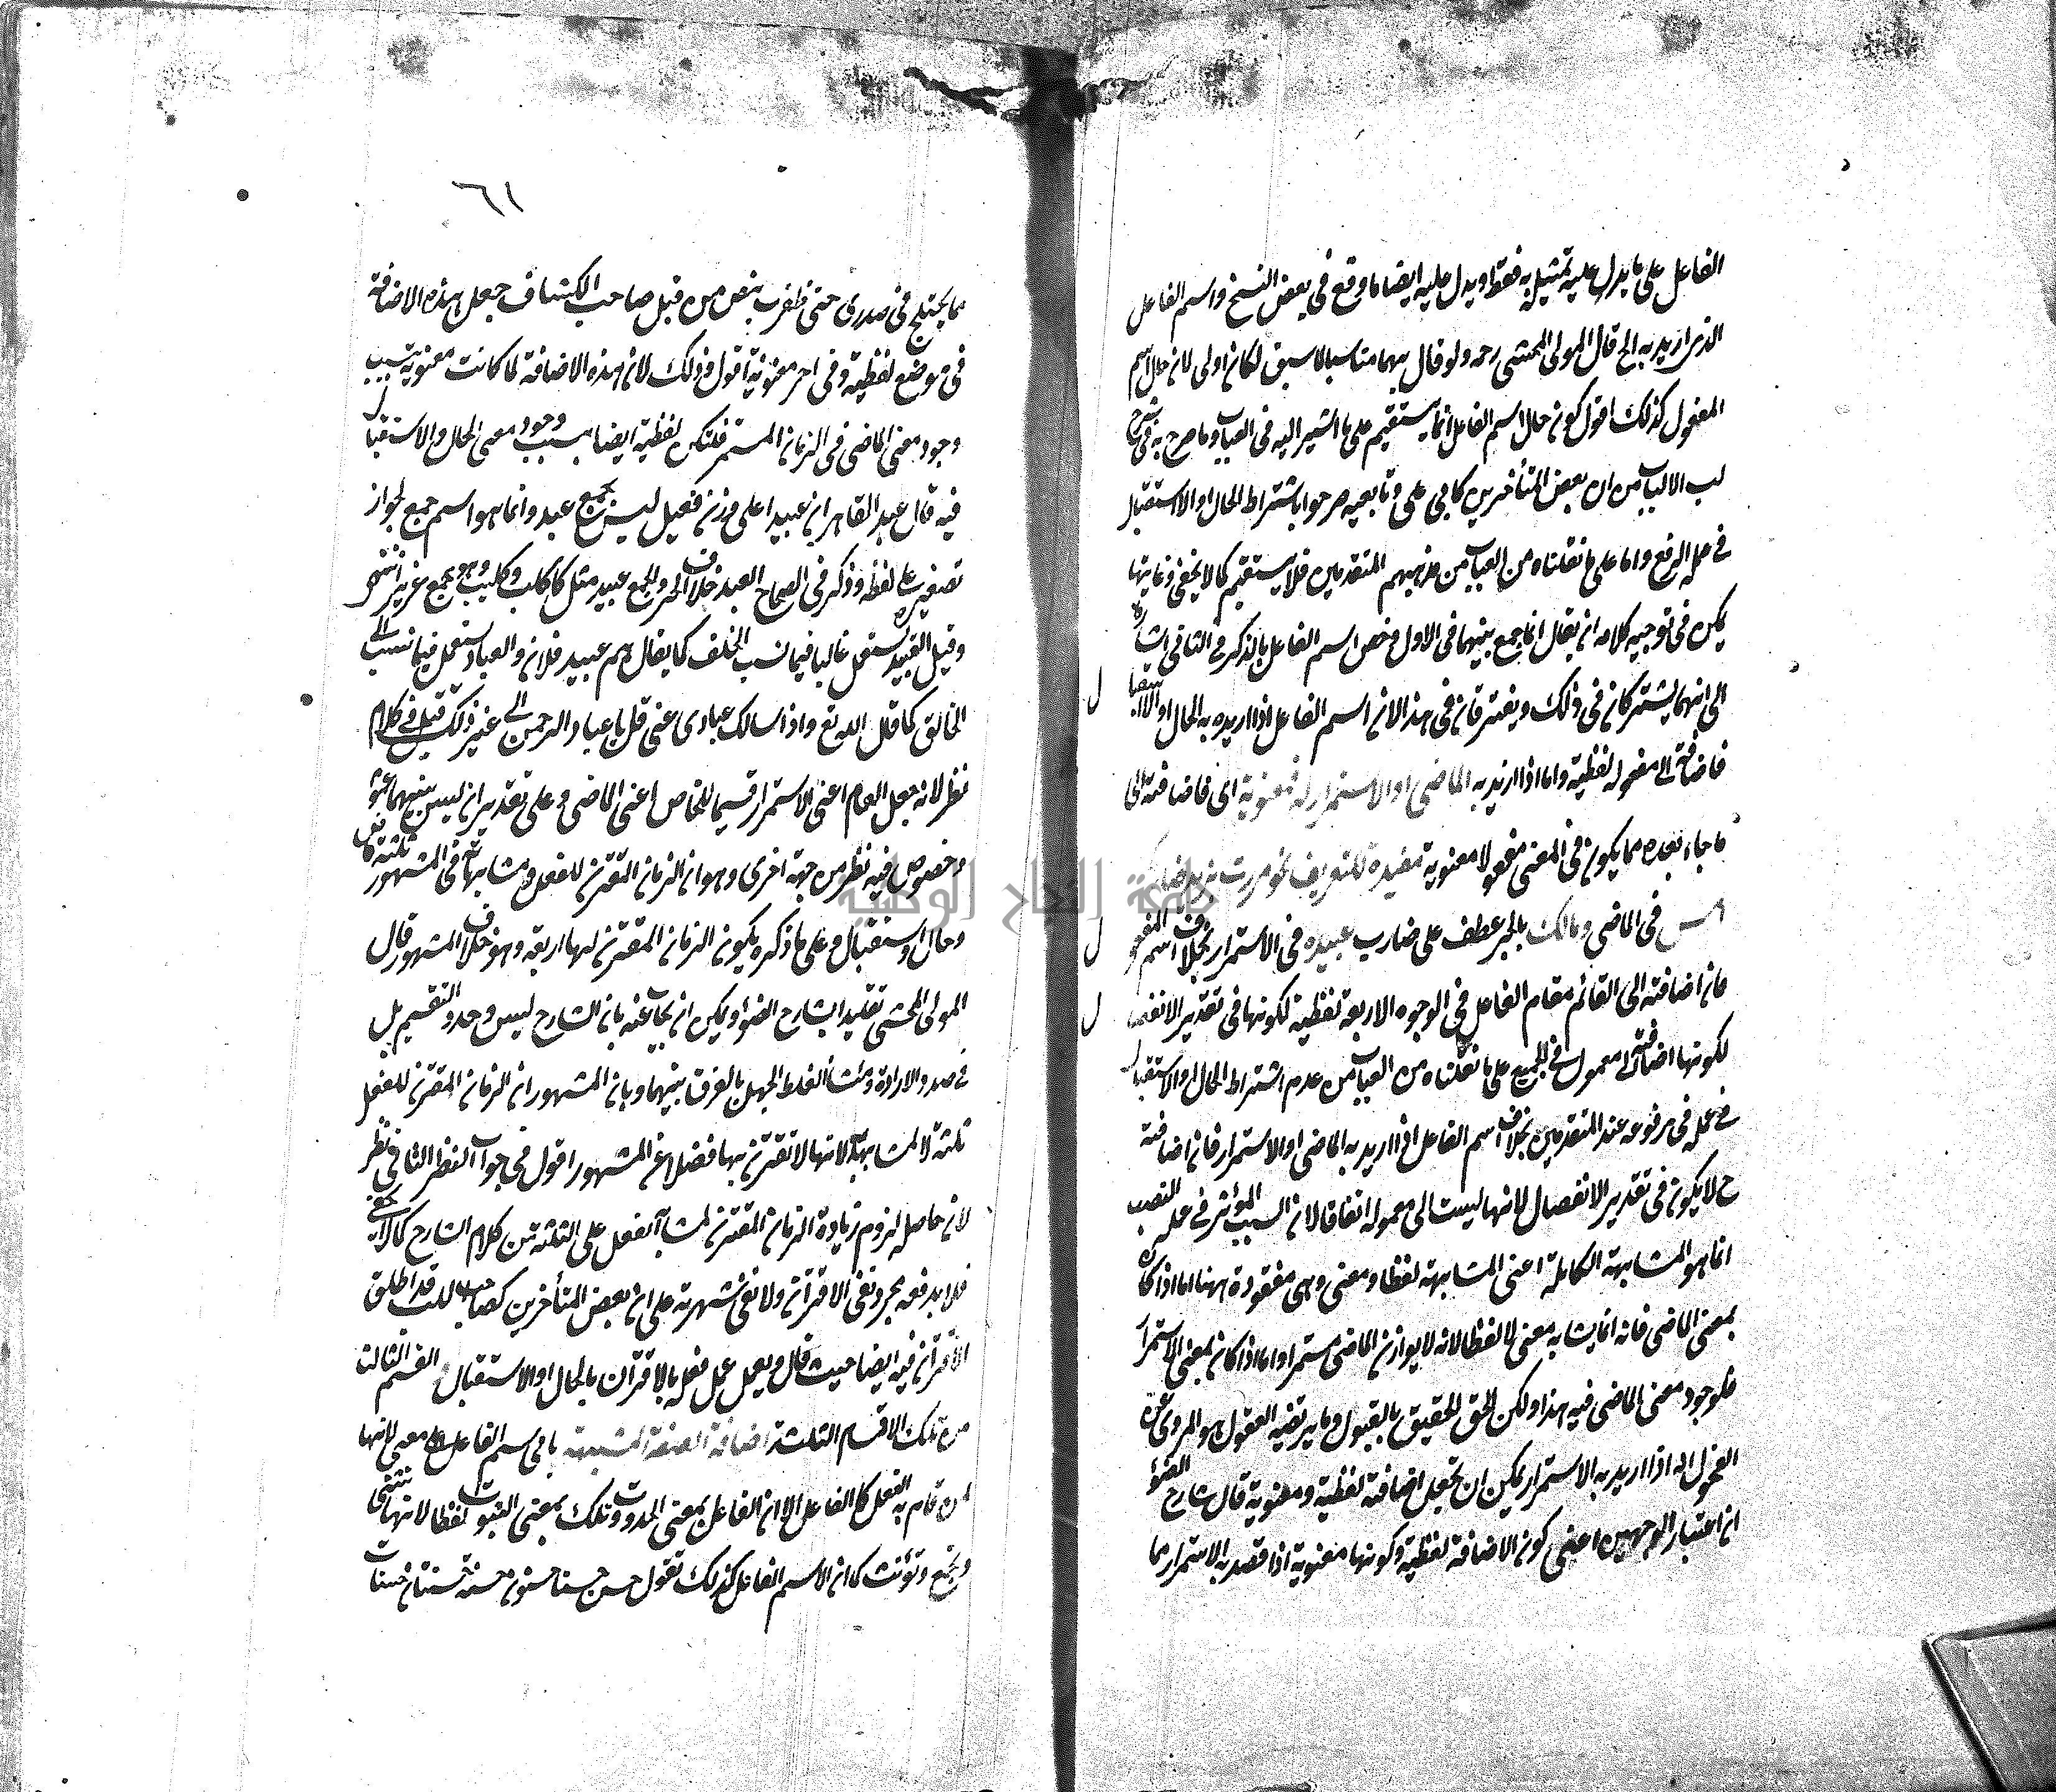 الفاعل على ما يدل عليه تمثيله به فقط او يدل عليه ايضا ما وقع فى بعض النسخ واسم الفاعل
الذى اريد به الخ قال المولى المحشى رحمه ولو قال بهما مناسبا لا سبق لكان اولى لان حال اسم
المفعول كذلك اقول كون حال اسم الفاعل انما يستقيم على ما اشير اليه فى العباب وما صرح به فى شرح
لب الالباب من ان بعض المتأخرين كابى على وتابعيه صرحوا باشتراط الحال او الاستقبال
فى عمله الرفع واما على ما نقلناه من العباب من مذهبهم المتقدمين فلا يستقيم كما لا يخفى وغايتها
يمكن فى توجيه كلامه ان يقال انما جمع بينهما فى الاول وخص اسم الفاعل بالذكر فى الثانى اشارة
الى انهما يشتركان فى ذلك ويفترقان فى هذا لان اسم الفاعل اذا اريد به الحال او الاستقبال
فاضافته الى مفعوله لفظية واما اذا اريد به الماضى او الاستمرار فمعنوية اى فاضافته الى
ما جاء بعده مما يكون فى المعنى مفعولا معنوية مفيدة للتعريف نحو مررت بزيد ضاربك
امس فى الماضى ومالك بالجر عطف على ضارب عبيده فى الاستمرار بخلاف اسم المفعول
فان اضافته الى القائم مقام الفاعل فى الوجوه الاربعة لفظية لكونها فى تقدير الانفصال
لكونها اضافة الى معموله فى الجميع على ما نقلناه من العباب من عدم اشتراط الحال او الاستقبال
فى عمله فى مرفوعه عند المتقدمين بخلاف اسم الفاعل اذا اريد به الماضى او الاستمرار فان اضافته
ح لا يكون فى تقدير الانفصال لانها ليست الى معموله اتفاقا لان السبب المؤثر فى عمله النصب
انما هو المشابهة الكاملة اعنى المشابهة لفظا ومعنى وهى مفقودة ههنا اما اذا كان
بمعنى الماضى فانه انما يشابه معنى لا لفظا لانه لا يوازن الماضى مستمرا واما اذا كان بمعنى الاستمرار
فلوجود معنى الماضى فيه هذا ولكن الحق الحقيق بالقبول وما يرتضيه العقول هو المروى عن
الفحول انه اذا اريد به الاستمرار يمكن ان تجعل اضافته لفظية ومعنوية قال شارح الضوء
ان اعتبار الوجهين اعنى كون الاضافة لفظية وكونها معنوية اذا قصد به الاستمرار مما
٦١
مما يختلج فى صدرى حتى ظفرت بنص من قبل صاحب الكشاف جعل هذه الاضافة
فى موضع لفظية وفى اخر معنوية اقول وذلك لان هذه الاضافة لما كانت معنوية بسبب
وجود معنى الماضى فى الزمان المستمر فلتكن لفظية ايضا بسبب وجود معنى الحال والاستقبال
فيه قال عبد القاهر ان عبيدا على وزن فعيل ليس بجمع عبد وانما هو اسم جمع لجواز
تصغيره على لفظه وذكر فى الصحاح العبد خلاف الحر والجمع عبيد مثل كالكلب وكليب وهو جمع عزيز انتهى
وقيل العبيد يستعمل غالبا فيما نسب الى المخلف كما يقال هم عبيد فلان والعباد يستعمل فيما نسب الى
الخالق كما قال الله تع واذا سالك عبادى عنى قل يا عباد الرحمن الى غير ذلك قيل فى كلام
نظر لانه جعل العام اعنى الاستمرار قسيما للخاص اعنى الماضى وعلى تقدير ان ليس بينهما عموم
وخصوص فيه نظر من جهة اخرى وهو ان الزمان المقترن للفعل ومشابهاته فى المشهور ثلثة ماض
وحال واستقبال وعلى ما ذكره يكون الزمان المقترن لها اربعة وهو خلاف المشهور قال
المولى المحشى تقليدا بشارح الضوء ويمكن ان يجاب عنه بان الشارح ليس فى صدد التقسيم بل
فى صدد الارادة ومنشأ الغلط الجهل بالفرق بينهما وبان المشهور ان الزمان المقترن للفعل
ثلثة لا لمشابهاته لانها لا تقترن بها فضلا عن المشهور اقول فى جواب النظر الثانى نظر
لان حاصله لزوم زيادة الزمان المقترن لمشابه الفعل على الثلثة من كلام الشارح كما لا يخفى
فلا يدفعه مجرد نفى الاقتران ولا نفى شهرته على ان بعض المتأخرين كصاحب اللب قد اطلق
الاقتران فيه ايضا حيث قال ويعمل عمل فعله بالاقتران بالحال او الاستقبال القسم الثالث
من تلك الاقسام الثلثة اضافة الصفة المشبهة باسم الفاعل الى معنى لانها
لمن قام به الفعل كالفاعل الا ان الفاعل بمعنى الحدوث وتلك بمعنى الثبوت لفظا لانها تثنى
وتجمع وتؤنث كما ان الاسم الفاعل كذلك تقول حسن حسنا حسنون حسنة حسنتان حسنات
جامعة النجاح الوطنية